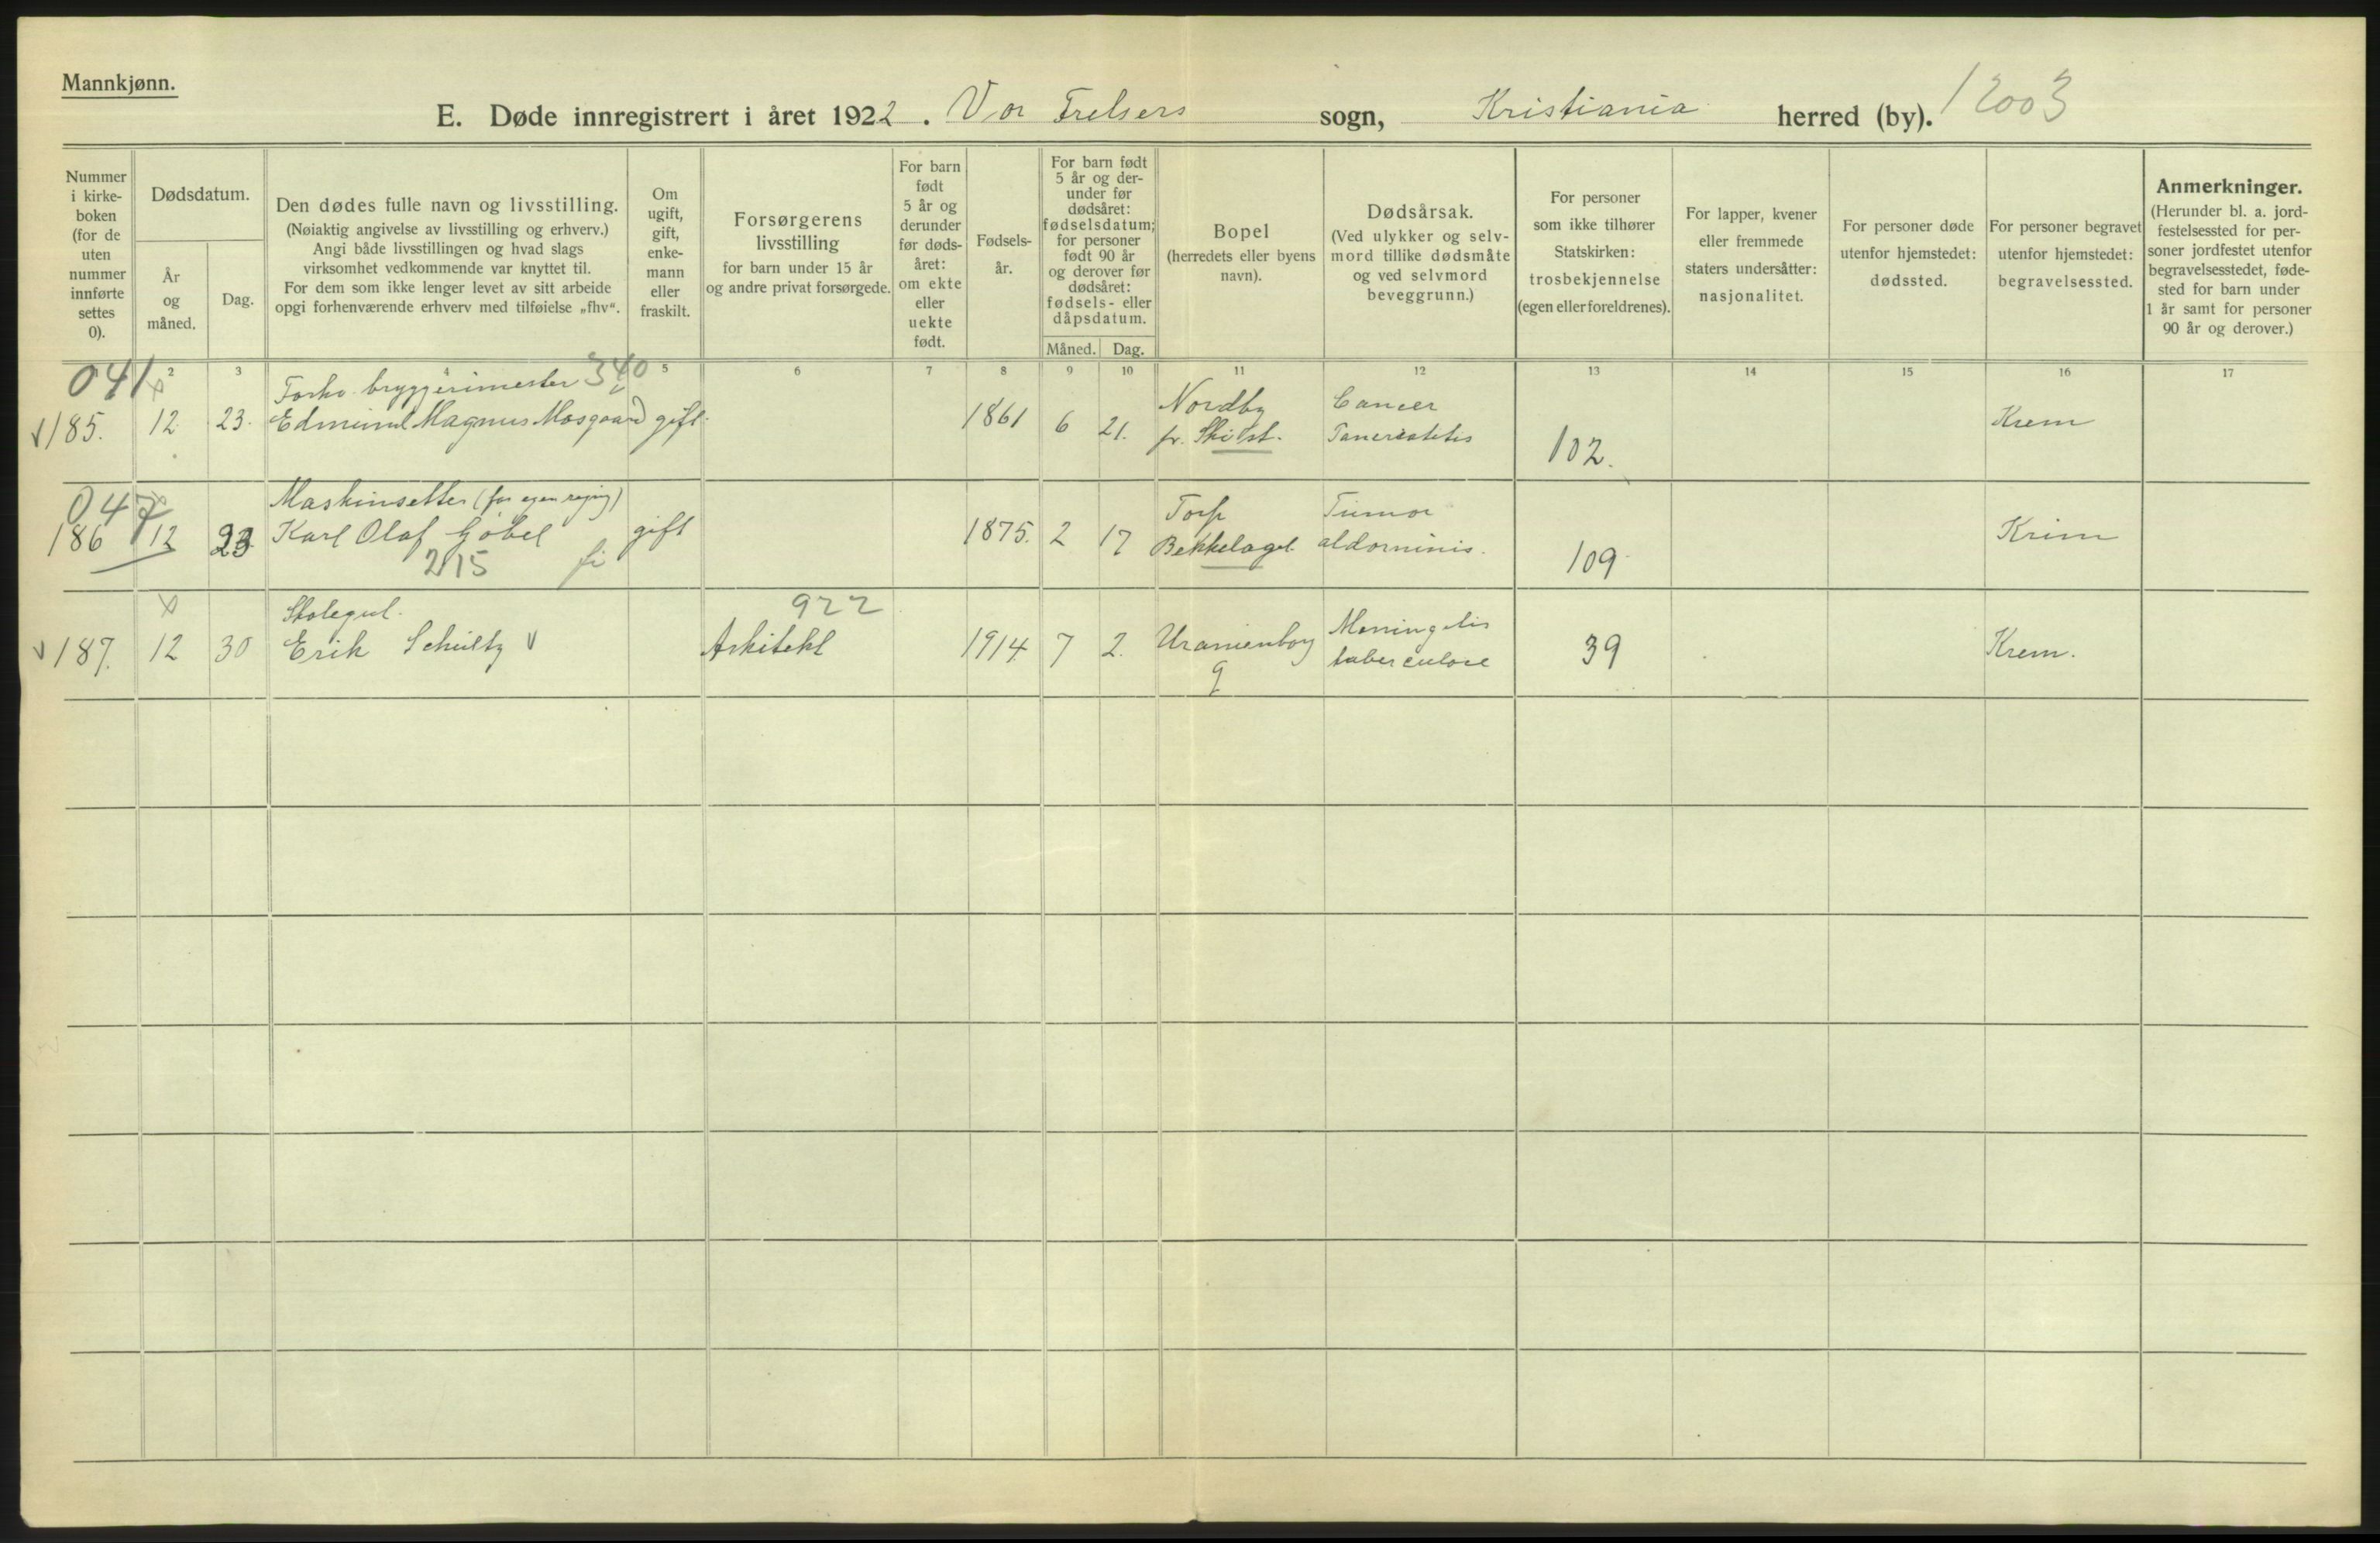 Mannkjønn.
E. Døde innregistrert i året 1922. Vor Frelsers sogn, Kristiania herred (by). 12003
Nummer
i kirke-
boken
(for de
uten
nummer
innførte
settes
0).
Dødsdatum.
År
og
måned.
Dag.
Den dødes fulle navn og livsstilling.
(Nøiaktig angivelse av livsstilling og erhverv.)
Angi både livsstillingen og hvad slags
virksomhet vedkommende var knyttet til.
For dem som ikke lenger levet av sitt arbeide
opgi forhenværende erhverv med tilføielse „fhv“.
Om
ugift,
gift,
enke-
mann
eller
fraskilt.
Forsørgerens
livsstilling
for barn under 15 år
og andre privat forsørgede.
For barn
født
5 år og
derunder
før døds-
året:
om ekte
eller
uekte
født.
Fødsels-
år.
For barn født
5 år og der-
under før
dødsåret:
fødselsdatum;
for personer
født 90 år
og derover før
dødsåret:
fødsels- eller
dåpsdatum.
Måned. Dag.
Bopel
(herredets eller byens
navn).
Dødsårsak.
(Ved ulykker og selv-
mord tillike dødsmåte
og ved selvmord
beveggrunn.)
For personer
som ikke tilhører
Statskirken:
trosbekjennelse
(egen eller foreldrenes).
For lapper, kvener
eller fremmede
staters undersåtter:
nasjonalitet.
For personer døde
utenfor hjemstedet:
dødssted.
For personer begravet
utenfor hjemstedet:
begravelsessted.
Anmerkninger.
(Herunder bl. a. jord-
festelsessted for per-
soner jordfestet utenfor
begravelsesstedet, føde-
sted for barn under
1 år samt for personer
90 år og derover.)
2 3 4 5 6 7 8 9 10 11 12 13 14 15 16 17
041 x Forhv. bryggerimester 340 Nordby Cancer
v 185. 12 23. Edmund Magnus Mosgaard gift. 1861 6 21. pr. Ski st. Pancreatitis 102. Krem
047 x Maskinsetter (for egen regning) Torp Tumor
186 12 23. Karl Olaf Gobel gift 1875. 2 17 Bekkelaget. abdominis. 109 Krem
215 fi
x Skolegut. 922 Meningitis
v 187. 12 30 Erik Schultz v Arkitekt 1914 7 2. Uranienborg tuberculose 39 Krem.
9